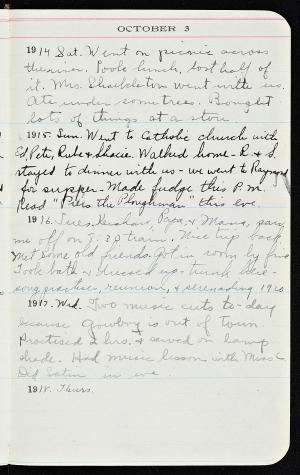 OCTOBER 3
1914 Sat. Went on picnic across
the river. Took lunch, lost half of
it. Mrs. Shackleton went with us.
Ate under some trees. Bought
lots of things at a store.
1915 Sun. Went to Catholic church with
Ed, Pete, Rube & Walked home - R. & S.
stayed to dinner with us - we went to
for supper - Made fudge this P.m.
Read "Piers the Ploughman" this eve.
1916. Tues. Papa & Mama,
me off on 9:30 train. Nice trip back
Met some old friends. Got in room by five
Took bath & dressed up - trunk here -
song practice, reunion, & serenading 1920
1917. Wed. Two music cuts to-day
because is out of town.
Practised 2 hrs. & served on lamp
shade. Had music lesson with Miss C
Did Latin in eve.
1918. Thurs.